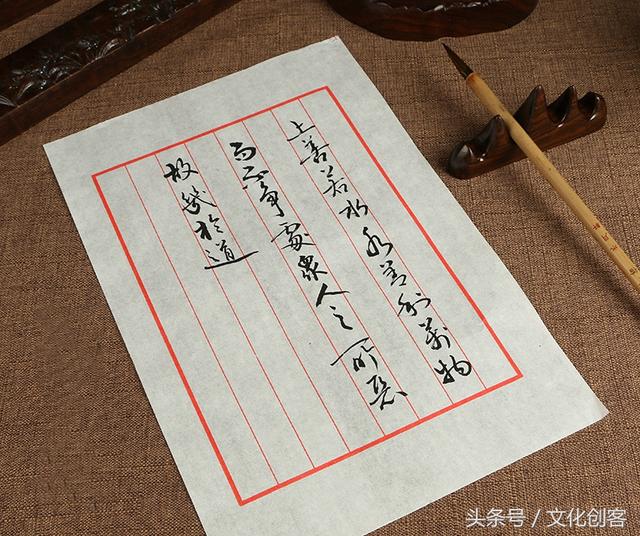 上善若水水善利萬物
而不爭處衆人之所惡
故幾於道
头条号 / 文化创客